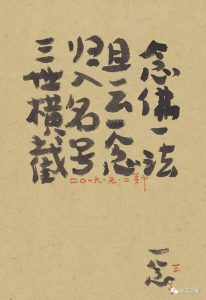 念佛一法
且云一念
归入名号
三世横截
二〇一六·元·二
一念